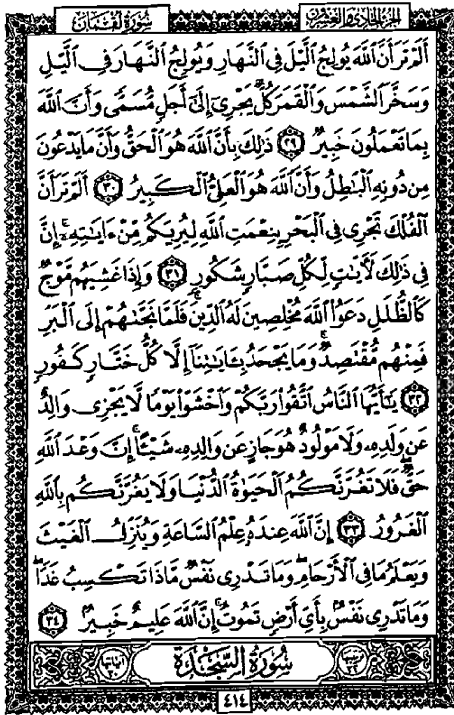 الجزء الحادي والعشرون
سورة لقمان
أَلَمْ تَرَ أَنَّ ٱللَّهَ يُولِجُ ٱلَّيْلَ فِي ٱلنَّهَارِ وَيُولِجُ ٱلنَّهَارَ فِي ٱلَّيْلِ
وَسَخَّرَ ٱلشَّمْسَ وَٱلْقَمَرَ كُلٌّ يَجْرِىٓ إِلَىٰٓ أَجَلٍ مُّسَمًّى وَأَنَّ ٱللَّهَ
بِمَا تَعْمَلُونَ خَبِيرٌ ٢٩ ذَٰلِكَ بِأَنَّ ٱللَّهَ هُوَ ٱلْحَقُّ وَأَنَّ مَا يَدْعُونَ
مِن دُونِهِ ٱلْبَٰطِلُ وَأَنَّ ٱللَّهَ هُوَ ٱلْعَلِىُّ ٱلْكَبِيرُ ٣٠ أَلَمْ تَرَ أَنَّ
ٱلْفُلْكَ تَجْرِى فِي ٱلْبَحْرِ بِنِعْمَتِ ٱللَّهِ لِيُرِيَكُم مِّنْ ءَايَٰتِهِۦٓ ۚ إِنَّ
فِي ذَٰلِكَ لَءَايَٰتٍ لِّكُلِّ صَبَّارٍ شَكُورٍ ٣١ وَإِذَا غَشِيَهُم مَّوْجٌ
كَٱلظُّلَلِ دَعَوُا۟ ٱللَّهَ مُخْلِصِينَ لَهُ ٱلدِّينَ فَلَمَّا نَجَّىٰهُمْ إِلَى ٱلْبَرِّ
فَمِنْهُم مُّقْتَصِدٌ ۚ وَمَا يَجْحَدُ بِـَٔايَٰتِنَآ إِلَّا كُلُّ خَتَّارٍ كَفُورٍ
٣٢ يَٰٓأَيُّهَا ٱلنَّاسُ ٱتَّقُوا۟ رَبَّكُمْ وَٱخْشَوْا۟ يَوْمًا لَّا يَجْزِى وَالِدٌ
عَن وَلَدِهِۦ وَلَا مَوْلُودٌ هُوَ جَازٍ عَن وَالِدِهِۦ شَيْـًٔا ۚ إِنَّ وَعْدَ ٱللَّهِ
حَقٌّ ۖ فَلَا تَغُرَّنَّكُمُ ٱلْحَيَوٰةُ ٱلدُّنْيَا وَلَا يَغُرَّنَّكُم بِٱللَّهِ
ٱلْغَرُورُ ٣٣ إِنَّ ٱللَّهَ عِندَهُۥ عِلْمُ ٱلسَّاعَةِ وَيُنَزِّلُ ٱلْغَيْثَ
وَيَعْلَمُ مَا فِي ٱلْأَرْحَامِ ۖ وَمَا تَدْرِى نَفْسٌ مَّاذَا تَكْسِبُ غَدًا ۖ
وَمَا تَدْرِى نَفْسٌۢ بِأَىِّ أَرْضٍ تَمُوتُ ۚ إِنَّ ٱللَّهَ عَلِيمٌ خَبِيرٌۢ ٣٤
سورة السجدة
٤١٤